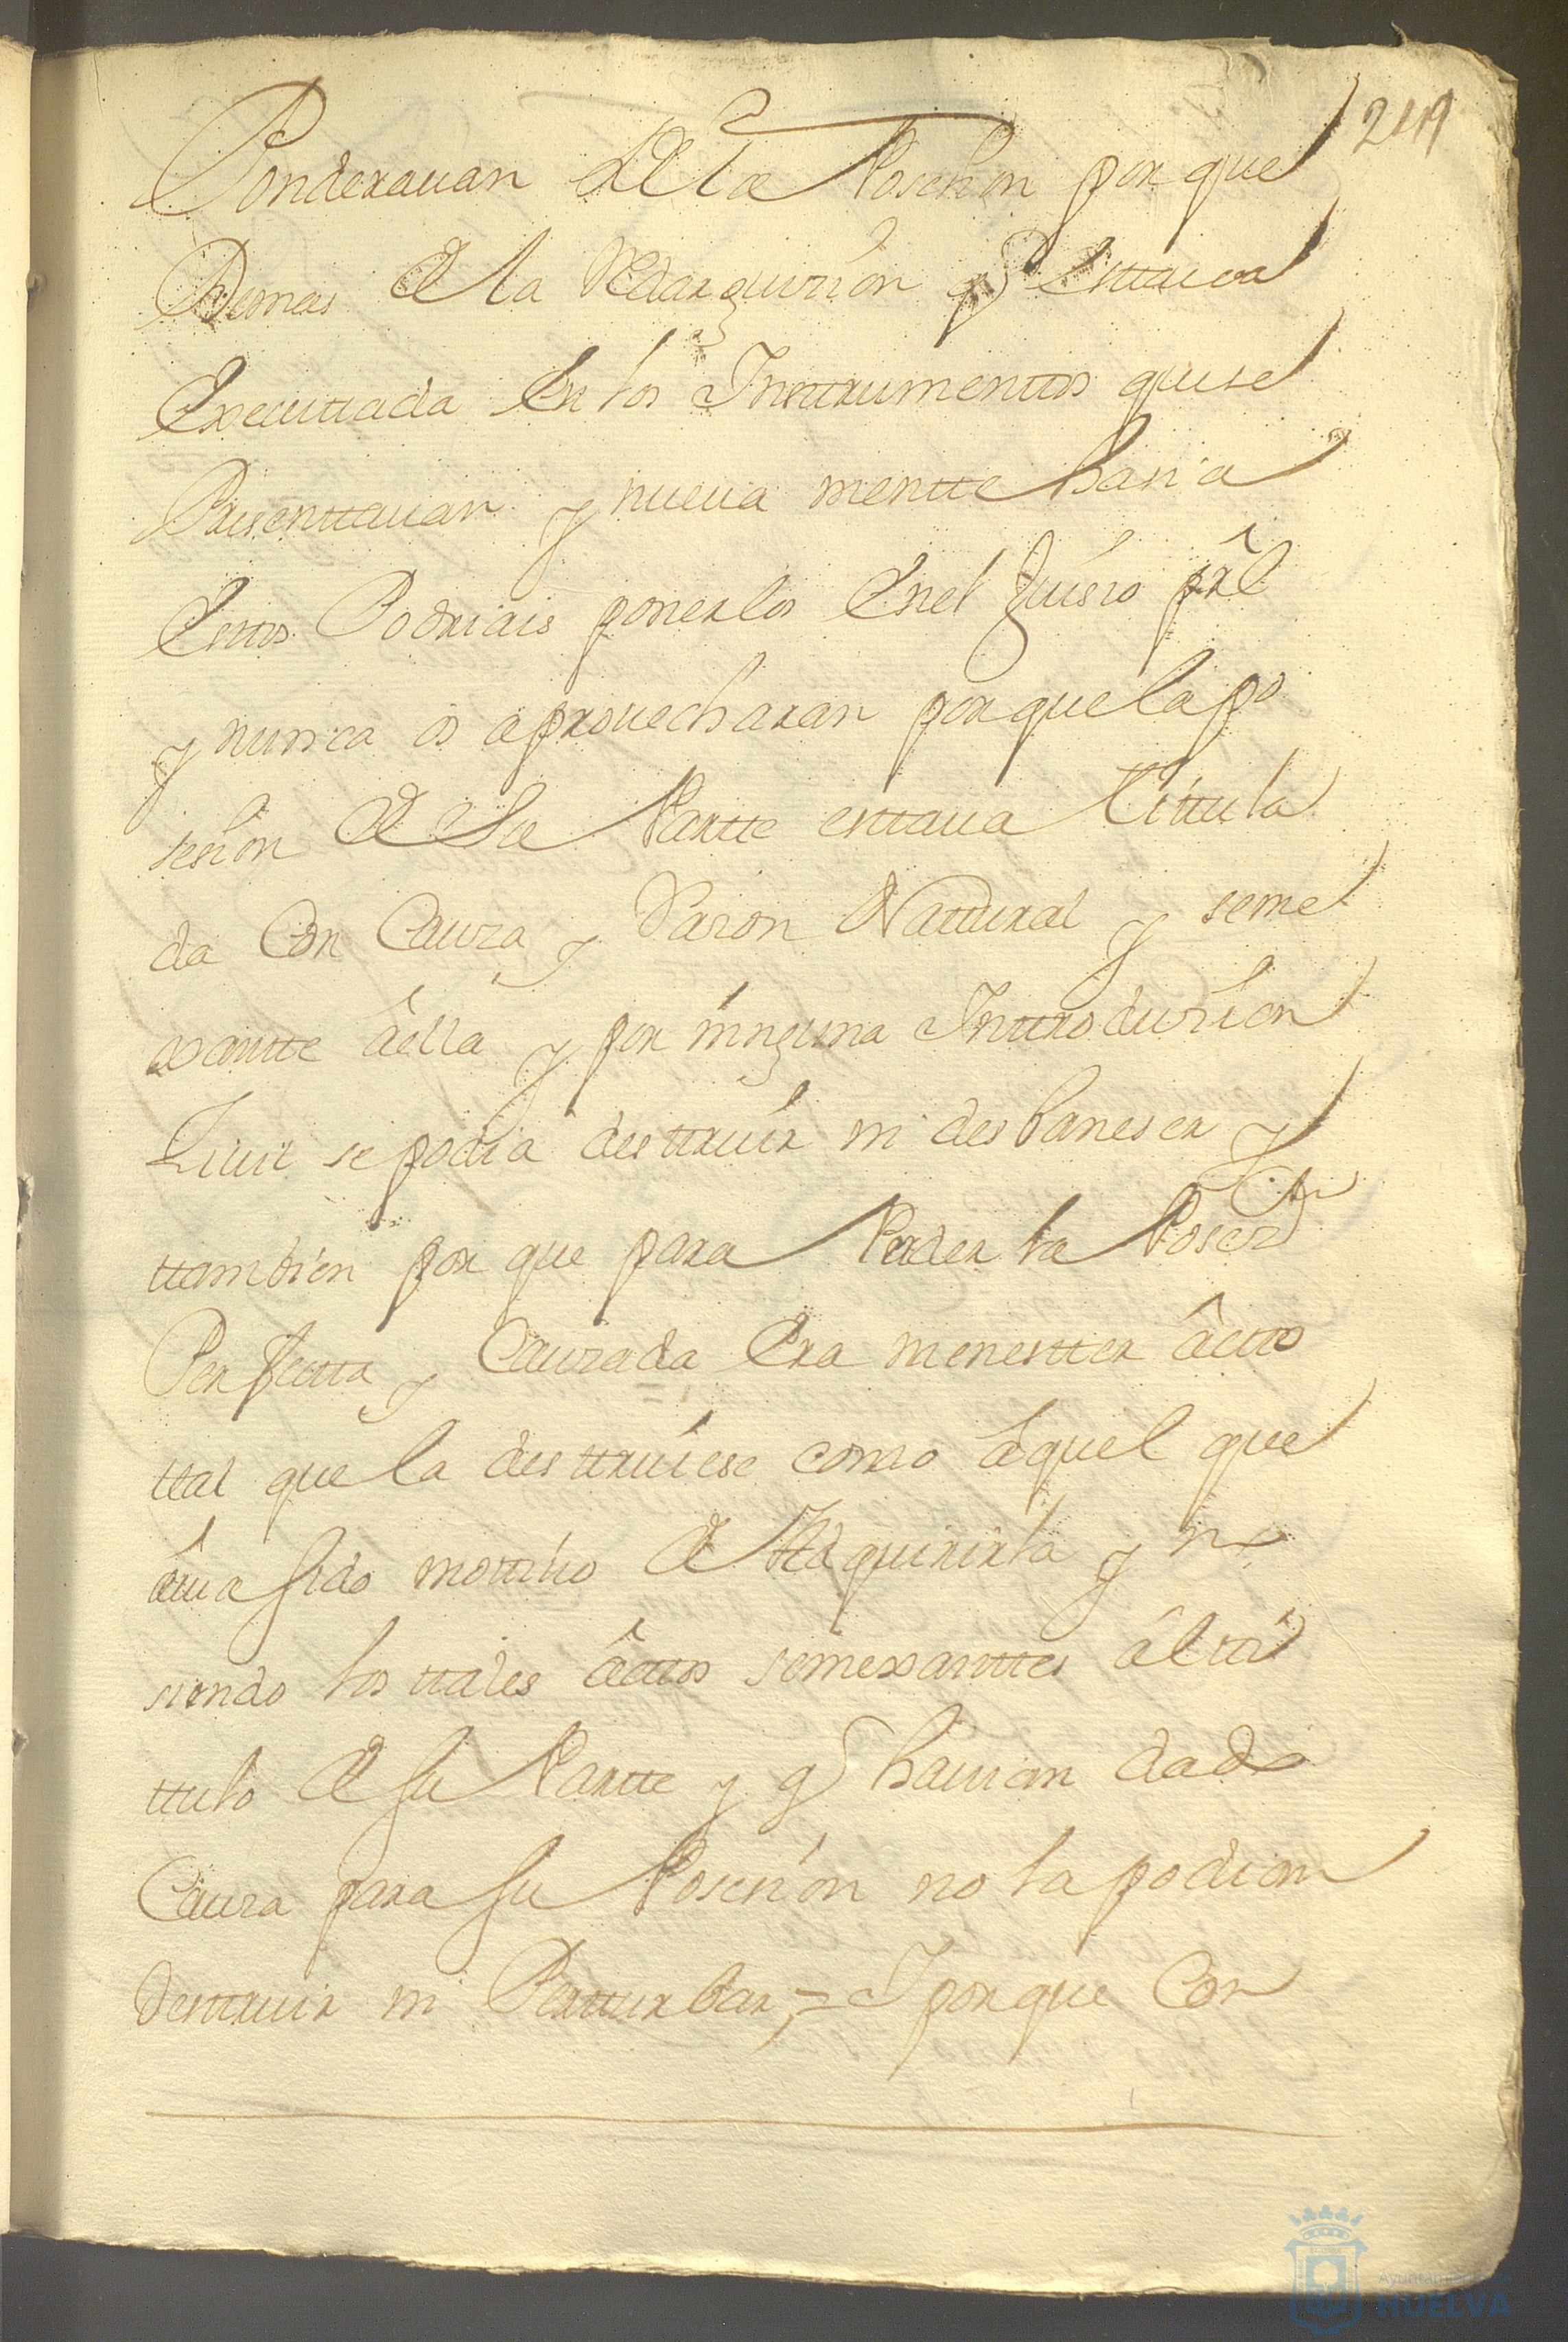 219
Ponderauan de la Posesion por que
Demas de la Redarguuzion q estaua
Executtada En los Insttrumenttos que se
Presenttauan y nueua mentte hasia
Esttos Podriais ponerlos Enel Juisio prâl
y nunca os aprouecharan porque la po
sesion de su Partte esttaua tittula
da Con Cauza y Rason Natural y seme
xantte âella y por ninguna Inttroduzion
se podia desttruir ni desbaneser y
ttambien por que para Perder la Poses.on
Perfectta y Cauzada Era menestter âctto
ttal que la desttruiese como âquel que
âuia sido mottiuo de Adquirirla y no
siendo los ttales âcttos semexanttes âl tti
ttulo de su Partte y q hauian dado
Cauza para su Posesion no la podian
desttruir ni Pertturbar = Y porque Con
Ayuntamiento de
HUELVA